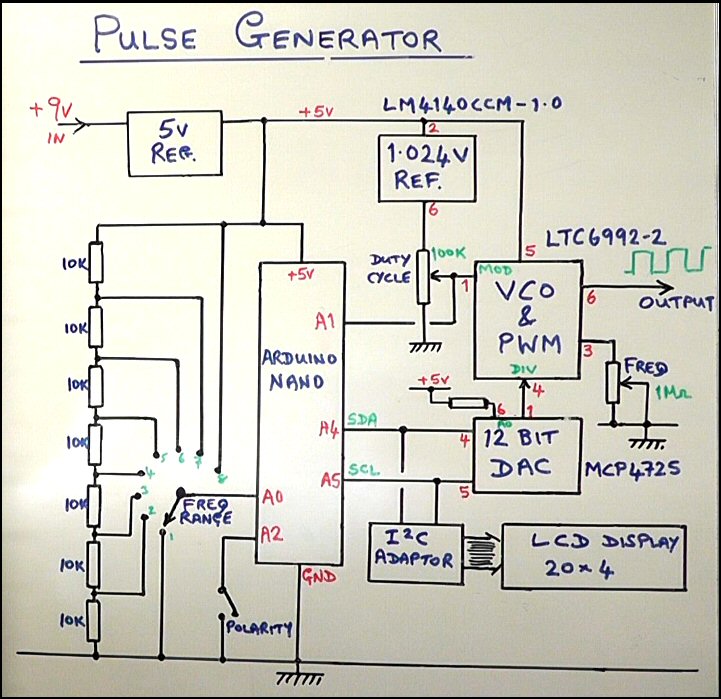 PULSE GENERATOR
+9V
IN
5V
REF.
+5V
LM4140CCM-1.0
2
1.024V
REF.
6
DUTY
CYCLE
100K
1
MOD
5
LTC6992-2
VCO
&
PWM
DIV
6
OUTPUT
3
FREQ
1MΩ
4
+5V
6
A0
1
12 BIT
DAC
4
5
MCP4725
+5V
A1
ARDUINO
NANO
A4
SDA
A5
SCL
A0
A2
GND
10K
10K
10K
10K
10K
10K
10K
1
2
3
4
5
6
7
8
FREQ
RANGE
POLARITY
I²C
ADAPTOR
LCD DISPLAY
20×4